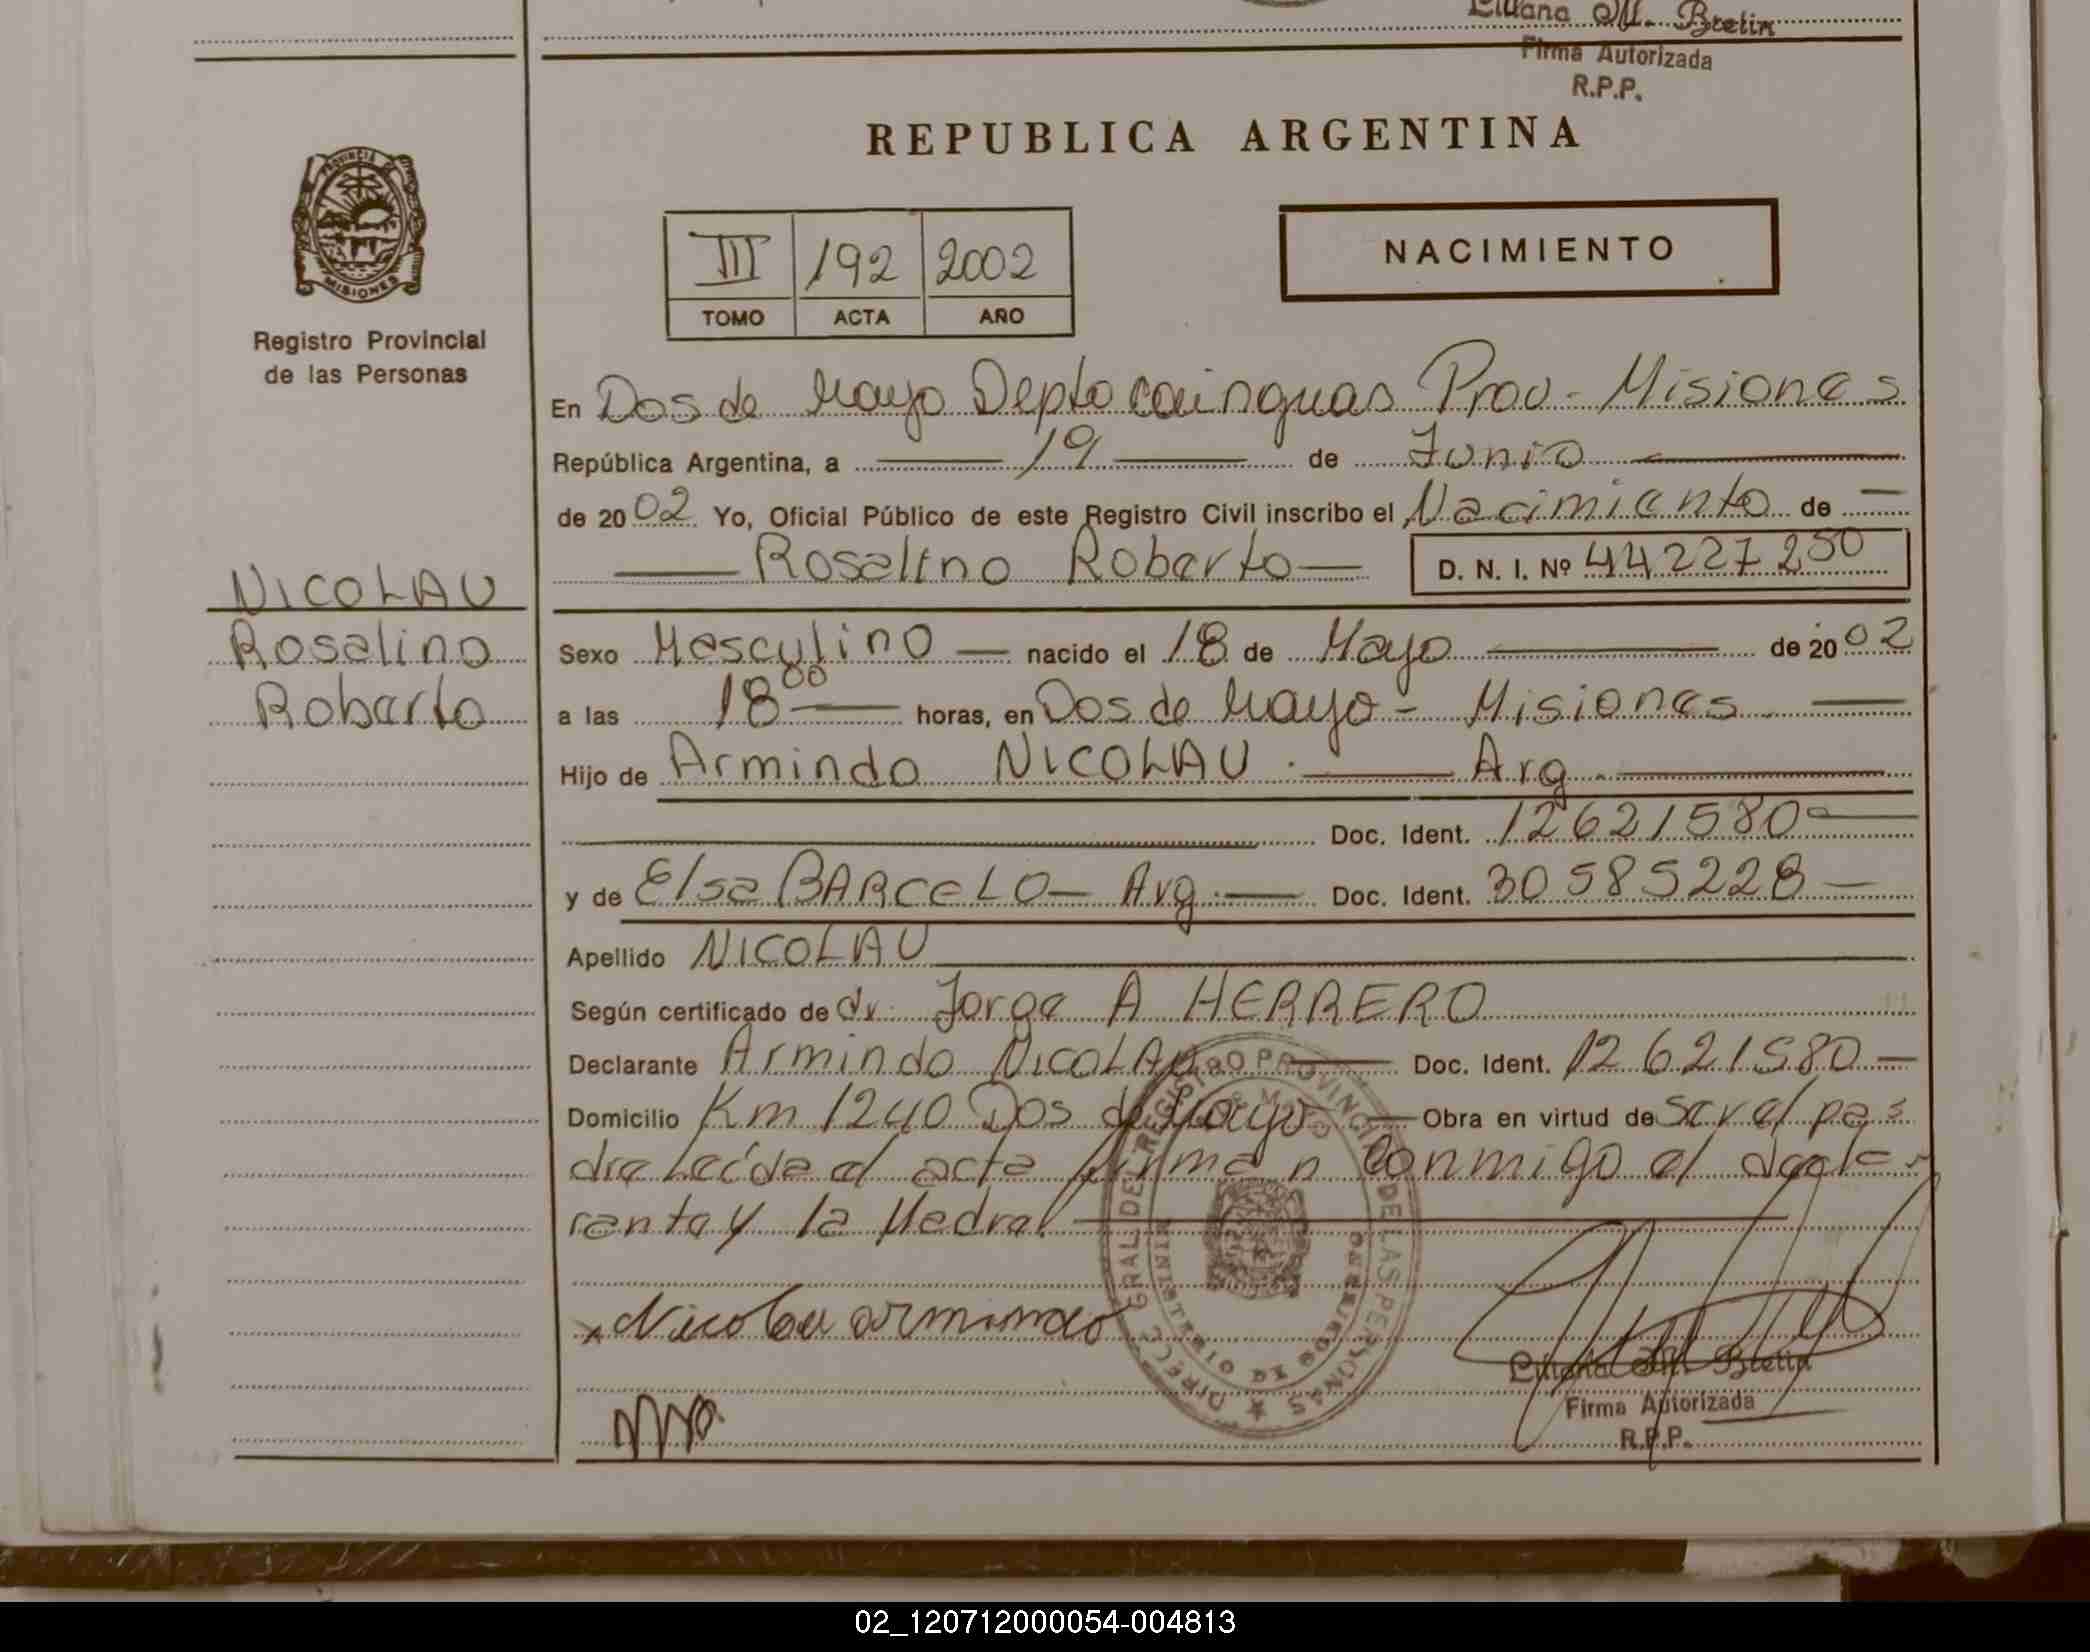 Liliana M. Brelin
Firma Autorizada
R.P.P.
REPUBLICA ARGENTINA
PROVINCIA DE
MISIONES
Registro Provincial
de las Personas
III 192 2002
TOMO ACTA AÑO
NACIMIENTO
En Dos de Mayo Depto Cainguas Prov. Misiones
República Argentina, a 19 de Junio
de 2002 Yo, Oficial Público de este Registro Civil inscribo el Nacimiento de
Rosalino Roberto D. N. I. Nº 44227250
NICOLAU
Rosalino
Roberto
Sexo Masculino nacido el 18 de Mayo de 2002
a las 18 00 horas, en Dos de Mayo - Misiones
Hijo de Armindo NICOLAU . Arg.
Doc. Ident. 12621580
y de Elsa BARCELO Arg. Doc. Ident. 30585228
Apellido NICOLAU
Según certificado de dr. Jorge A HERRERO
Declarante Armindo NICOLAU Doc. Ident. 12621580
Domicilio Km 1240 Dos de Mayo Obra en virtud de Ser el pa
dre Leída el acta firman conmigo el decla
rante y la Madre
DIREC. GRAL. DEL REGISTRO PROVINCIAL DE LAS PERSONAS
MINISTERIO DE GOBIERNO
Nicolau armindo
Liliana M. Brelin
Firma Autorizada
R.P.P.
02_120712000054-004813